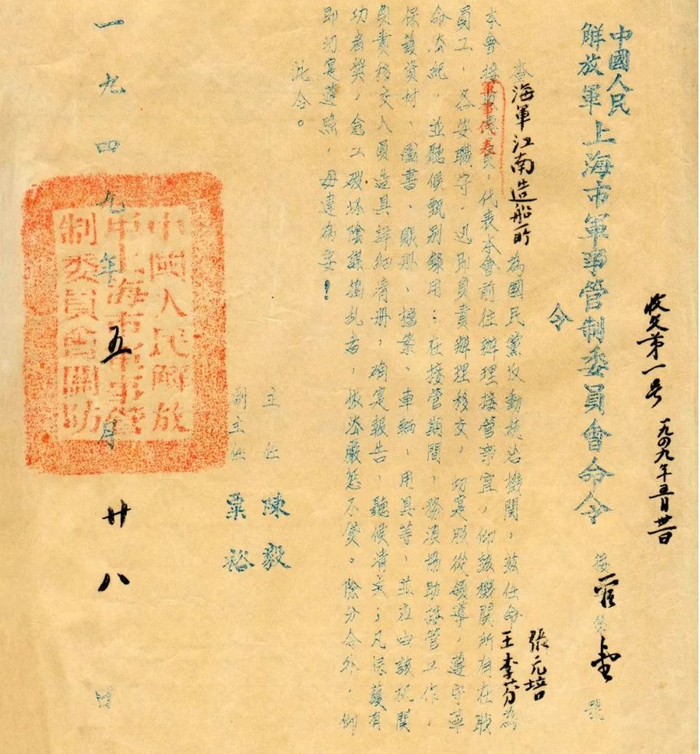 收文第一号 一九四九年五月
中國人民
解放軍
上海市軍事管制委員會命令
令
查海軍江南造船所為國民黨反動統治機關，茲任命張元培王李芬為
本會軍事代表，代表本會前往辦理接管事宜，仰該機關所有在職
員工，各安職守，迅即負責辦理移交，切实服從領導，遵守革
命法紀，並聽候甄别錄用；在接管期間，務須協助接管工作，
保護資材、圖書、賬册、檔案、車輛、用具等，並应由該机関
負責移交人員造具詳細清册，確实報告，聽候清点；凡保護有
功者獎，怠工破坏陰謀搗乱者，依法嚴懲不貸。除分令外，仰
即切寔遵照，毋違為要！
此令。
主任 陳毅
副主任 粟裕
一九四九年五月廿八日
中國人民解放
軍上海市軍事管
制委員會關防